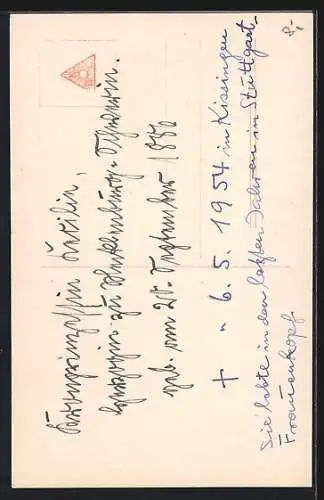 Kronprinzessin Cecilie,
Herzogin zu Mecklenburg-Schwerin.
geb. am 20. September 1886
+ - 6.5.1954 in Kissingen
Sie lebte in den letzten Jahren in Stuttgart-
Frauenkopf.
8,-